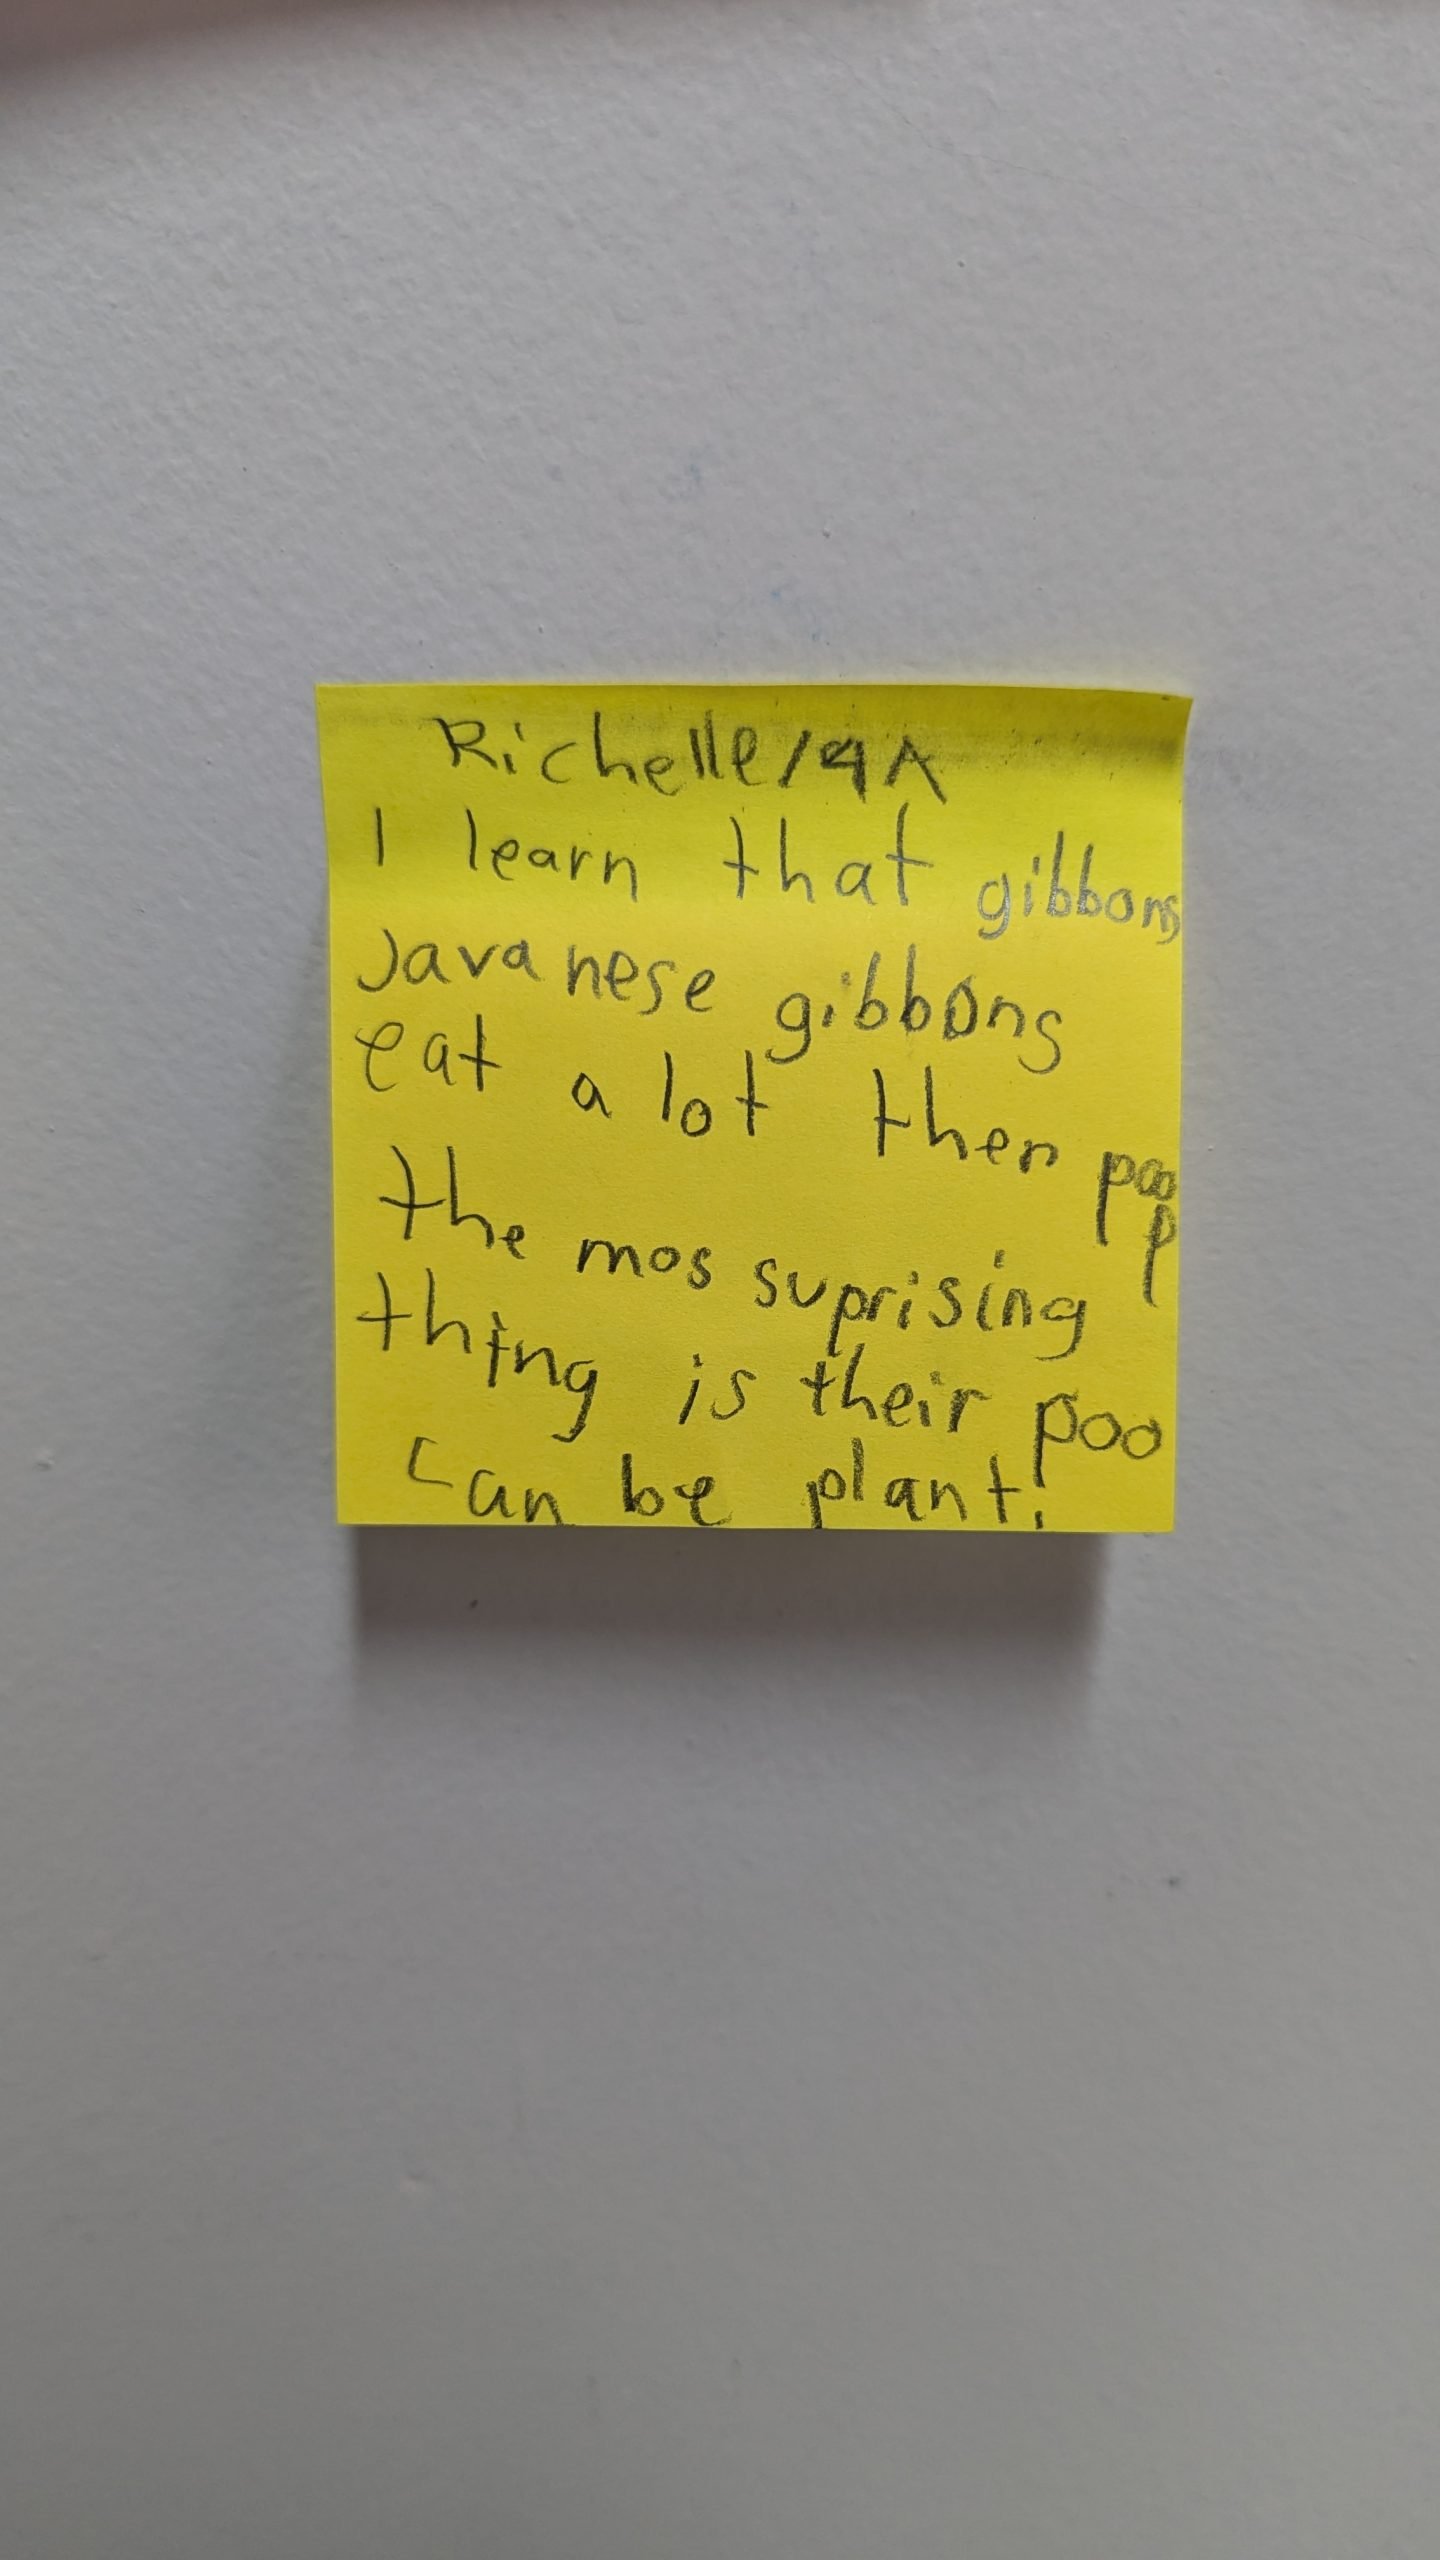 Richelle/4A
I learn that gibbons
Javanese gibbons
eat a lot then poop
the mos suprising
thing is their poo
can be plant!